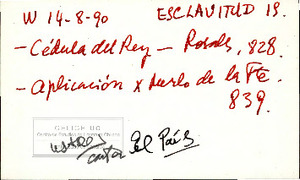 W 14-8-90 ESCLAVITUD 19.
- Cédula del Rey - Rosas, 828.
- Aplicación x Merlo de la Fte.
839.
CELICH UC
El País